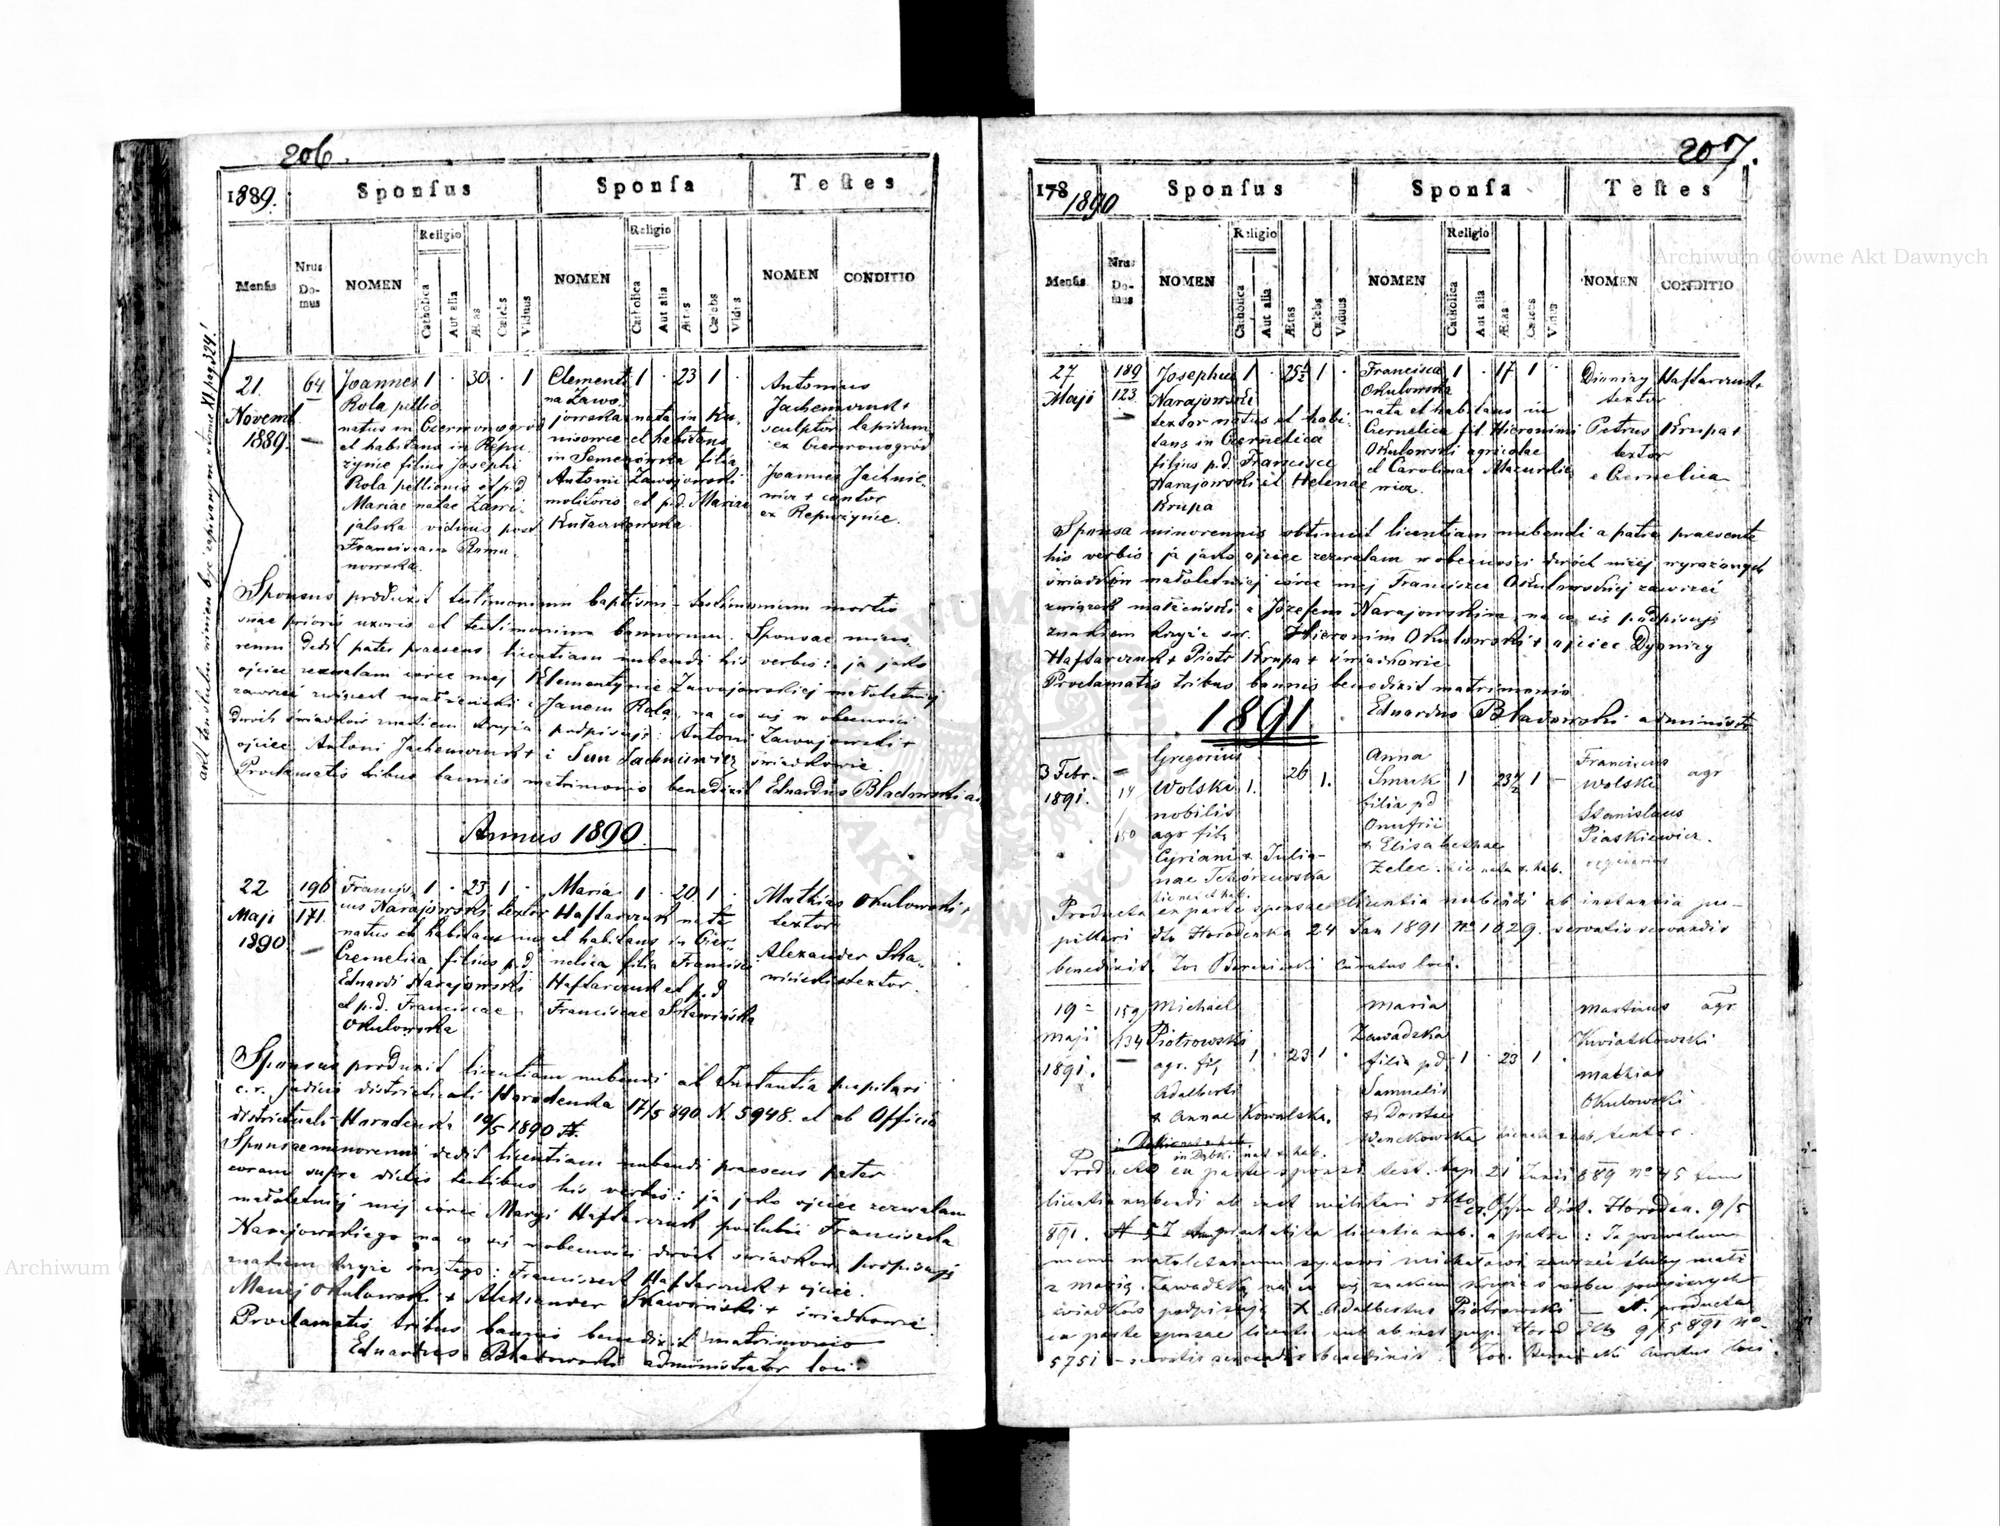 206.
1889.
Sponſus
Sponſa
Teſtes
Menſis
Nrus Do-mus
NOMEN
Religio
Catholica
Aut alia
Ætas
Cælebs
Viduus
NOMEN
Religio
Catholica
Aut alia
Ætas
Cælebs
Vidua
NOMEN
CONDITIO
21 64 Joannes 1 · 30 · 1 Clementi 1 · 23 1 · Antonius
Novemb Rola pellio na Zawa Jachemczuk +
1889. natus in Czernonogród jowska nata in Ku sculptor lapidum
et habitans in Repu nisowce et habitans ex Czernonogród
żynce filius Josephi in Semenówka filia
Rola pellionis et p.d. Antonii Zawajowski Joannes Jachnie
Mariae natae Zawi molitoris et p.d. Mariae wicz + cantor
jalska viduus post Kułaczkowska ex Repużynce.
Franciscam Roma
nowska.
Sponsus produxit testimonium baptismi - testimonium mortis
suae prioris uxoris et testimonium bannorum. Sponsae mino
renni dedit pater praesens licentiam nubendi his verbis: ja jako
ojciec zezwalam córce mej Klementynie Zawajowskiej małoletniej
zawrzeć związek małżeński z Janem Rolą, na co się w obecności
dwóch świadków znakiem krzyża podpisuję: Antoni Zawajowski +
ojciec. Antoni Jachemczuk + i Jan Jachniewicz świadkowie.
Proclamatis tribus bannis matrimonio benedixit Eduardus Bladowski
Annus 1890.
22 196 Francis 1 · 23 1 · Maria 1 · 20 1 · Mathias Okulowski +
Maji 171 cus Narajowski textor Haftarczuk nata textor
1890 natus et habitans in et habitans in Czer
Czernelica filius p.d. nelica filia Francisci Alexander Ska
Eduardi Narajowski Haftarczuk et p.d. wiński textor.
et p.d. Franciscae Franciscae Skawińska
Okulowska
Sponsus produxit licentiam nubendi ab Instantia pupilari
c. r. Judicii districtuali Horodenka 17/5 890 N. 5948. et ab Officio
districtuali Horodenka 19/5 1890
Sponsae minorenni dedit licentiam nubendi praesens pater
coram supra dictis testibus his verbis: ja jako ojciec zezwalam
małoletniej mej córce Maryi Haftarczuk poślubić Franciszka
Narajowskiego na co się w obecności dwóch świadków podpisuję
znakiem krzyża świętego: Franciszek Haftarczuk + ojciec.
Maciej Okulowski + Aleksander Skawiński + świadkowie.
Proclamatis tribus bannis benedixit matrimonio
Eduardus Bladowski administrator loci
207.
178 1890
Sponſus
Sponſa
Teſtes
Menſis
Nrus Do-mus
NOMEN
Religio
Catholica
Aut alia
Ætas
Cælebs
Viduus
NOMEN
Religio
Catholica
Aut alia
Ætas
Cælebs
Vidua
NOMEN
CONDITIO
27 189 Josephus 1 · 25½ 1 · Francisca 1 · 17 1 · Dionizy Haftarczuk +
Maji 123 Narajowski Okulowska textor
textor natus et habi nata et habitans in
tans in Czernelica Czernelica fil. Hieronimi Petrus Krupa +
filius p.d. Francisci Okulowski agricolae textor
Narajowski et Helenae et Carolinae Mazurkie e Czernelica
Krupa wicz.
Sponsa minorennis obtinuit licentiam nubendi a patre praesente
his verbis: ja jako ojciec zezwalam w obecności dwóch niżej wyrażonych
świadków małoletniej córce mej Franciszce Okulowskiej zawrzeć
związek małżeński z Józefem Narajowskim, na co się podpisuję
znakiem krzyża św. Hieronim Okulowski + ojciec Dyonizy
Haftarczuk + Piotr Krupa + świadkowie.
Proclamatis tribus bannis benedixit matrimonio
1891 Eduardus Bladowski administr
3 Febr. Gregorius 26 1. Anna Franciscus
1891. 14 Wolski 1. Smuk 1 23½ 1 - Wolski agr
nobilis filia pd Stanislaus
150 agr fil. Onufrii Piaskiewicz.
Cypriani & Julia- & Elisabethae
nae Tchórzewska Zelec. hic nata & hab.
hic nat et hab.
Producta ex parte sponsae licentia nubendi ab instantia pu-
pillari dto Horodenka 24 Jan 1891 No 1029. servatis servandis
benedixit. curatus loci.
19 159 Michael Maria Martinus agr
Maji 134 Piotrowski Zawadzka Kwiatkowski
1891. agr. fil. 1 · 23 1 · filia pd 1 · 23 1 · Mathias
Adalberti Samuelis Okulowski
& Annae Kowalska. & Doroteae
in Dąbki nat & hab. Wenckowska hic nata & hab. textor.
Producto ex parte sponsi test. bap. 21 Junii 889 No 45 tum
licentia nubendi ab inst militari dtto Horoden. 9/5
891. licentia nub. a patre: Ja pozwalam
memu małoletniemu synowi Michałowi zawrzeć śluby małż
z Maryą Zawadzką na co się znakiem krzyża s wobec powyższych
świadków podpisuję X Adalbertus Piotrowski — producta
ex parte sponsae licentia nub ab inst pup. Horod dto 9/5 891 No
5751 - servatis servandis benedixit. Curatus loci.
akt tenślubu winien być zapisanym w tomie XI pag 324!
Archiwum Główne Akt Dawnych
Archiwum Główne Akt Dawnych